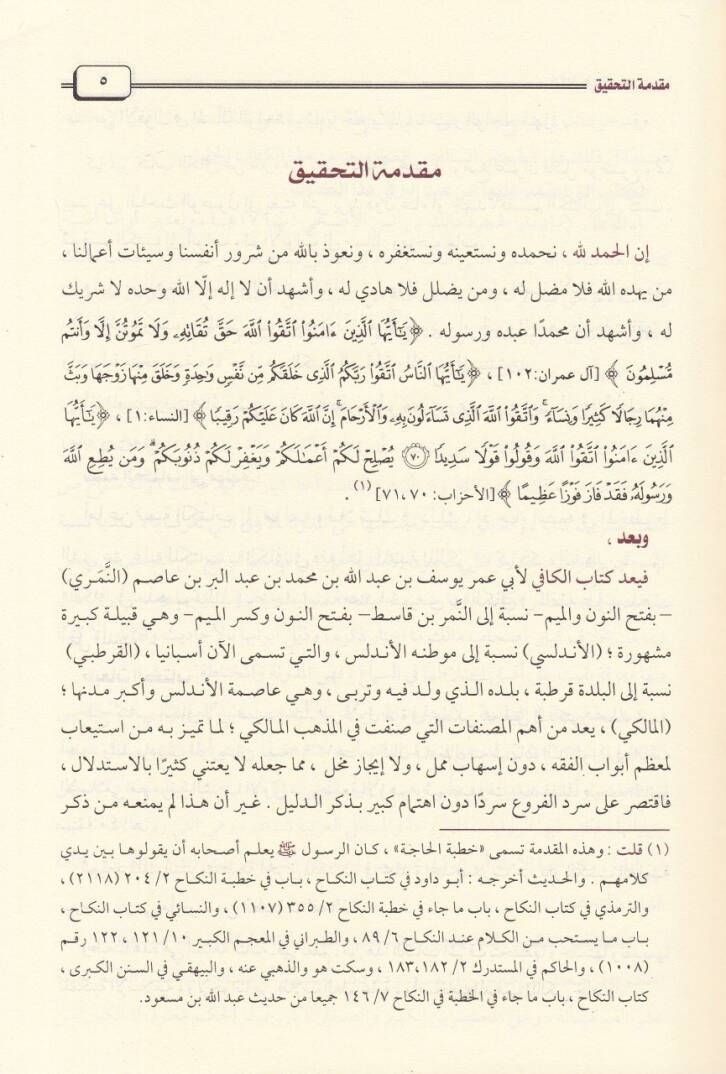 مقدمة التحقيق
٥
مقدمة التحقيق
إن الحمد لله ، نحمده ونستعينه ونستغفره ، ونعوذ بالله من شرور أنفسنا وسيئات أعمالنا ،
من يهده الله فلا مضل له ، ومن يضلل فلا هادي له ، وأشهد أن لا إله إلّا الله وحده لا شريك
له ، وأشهد أن محمدًا عبده ورسوله . ﴿ يَٰٓأَيُّهَا ٱلَّذِينَ ءَامَنُوا۟ ٱتَّقُوا۟ ٱللَّهَ حَقَّ تُقَاتِهِۦ وَلَا تَمُوتُنَّ إِلَّا وَأَنتُم
مُّسْلِمُونَ ﴾ [آل عمران:١٠٢] ، ﴿ يَٰٓأَيُّهَا ٱلنَّاسُ ٱتَّقُوا۟ رَبَّكُمُ ٱلَّذِى خَلَقَكُم مِّن نَّفْسٍ وَٰحِدَةٍ وَخَلَقَ مِنْهَا زَوْجَهَا وَبَثَّ
مِنْهُمَا رِجَالًا كَثِيرًا وَنِسَآءً ۚ وَٱتَّقُوا۟ ٱللَّهَ ٱلَّذِى تَسَآءَلُونَ بِهِۦ وَٱلْأَرْحَامَ ۚ إِنَّ ٱللَّهَ كَانَ عَلَيْكُمْ رَقِيبًا ﴾ [النساء:١] ، ﴿ يَٰٓأَيُّهَا
ٱلَّذِينَ ءَامَنُوا۟ ٱتَّقُوا۟ ٱللَّهَ وَقُولُوا۟ قَوْلًا سَدِيدًا ﴿٧٠﴾ يُصْلِحْ لَكُمْ أَعْمَٰلَكُمْ وَيَغْفِرْ لَكُمْ ذُنُوبَكُمْ ۗ وَمَن يُطِعِ ٱللَّهَ
وَرَسُولَهُۥ فَقَدْ فَازَ فَوْزًا عَظِيمًا ﴾ [الأحزاب: ٧١،٧٠] (١) .
وبعد ،
فيعد كتاب الكافي لأبي عمر يوسف بن عبد الله بن محمد بن عبد البر بن عاصم (النَّمَري)
– بفتح النون والميم– نسبة إلى النَّمر بن قاسط– بفتح النون وكسر الميم– وهي قبيلة كبيرة
مشهورة ؛ (الأندلسي) نسبة إلى موطنه الأندلس ، والتي تسمى الآن أسبانيا ، (القرطبي)
نسبة إلى البلدة قرطبة ، بلده الذي ولد فيه وتربى ، وهي عاصمة الأندلس وأكبر مدنها ؛
(المالكي) ، يعد من أهم المصنفات التي صنفت في المذهب المالكي ؛ لما تميز به من استيعاب
لمعظم أبواب الفقه ، دون إسهاب ممل ، ولا إيجاز مخل ، مما جعله لا يعتني كثيرًا بالاستدلال ،
فاقتصر على سرد الفروع سردًا دون اهتمام كبير بذكر الدليل . غير أن هذا لم يمنعه من ذكر
(١) قلت : وهذه المقدمة تسمى «خطبة الحاجة» ، كان الرسول ﷺ يعلم أصحابه أن يقولوها بين يدي
كلامهم . والحديث أخرجه : أبو داود في كتاب النكاح ، باب في خطبة النكاح ٢/ ٢٠٤ (٢١١٨) ،
والترمذي في كتاب النكاح ، باب ما جاء في خطبة النكاح ٢/ ٣٥٥ (١١٠٧) ، والنسائي في كتاب النكاح ،
باب ما يستحب من الكلام عند النكاح ٦/ ٨٩ ، والطبراني في المعجم الكبير ١٠/ ١٢١ ، ١٢٢ رقم
(١٠٠٨) ، والحاكم في المستدرك ٢/ ١٨٣،١٨٢ ، وسكت هو والذهبي عنه ، والبيهقي في السنن الكبرى ،
كتاب النكاح ، باب ما جاء في الخطبة في النكاح ٧/ ١٤٦ جميعا من حديث عبد الله بن مسعود.